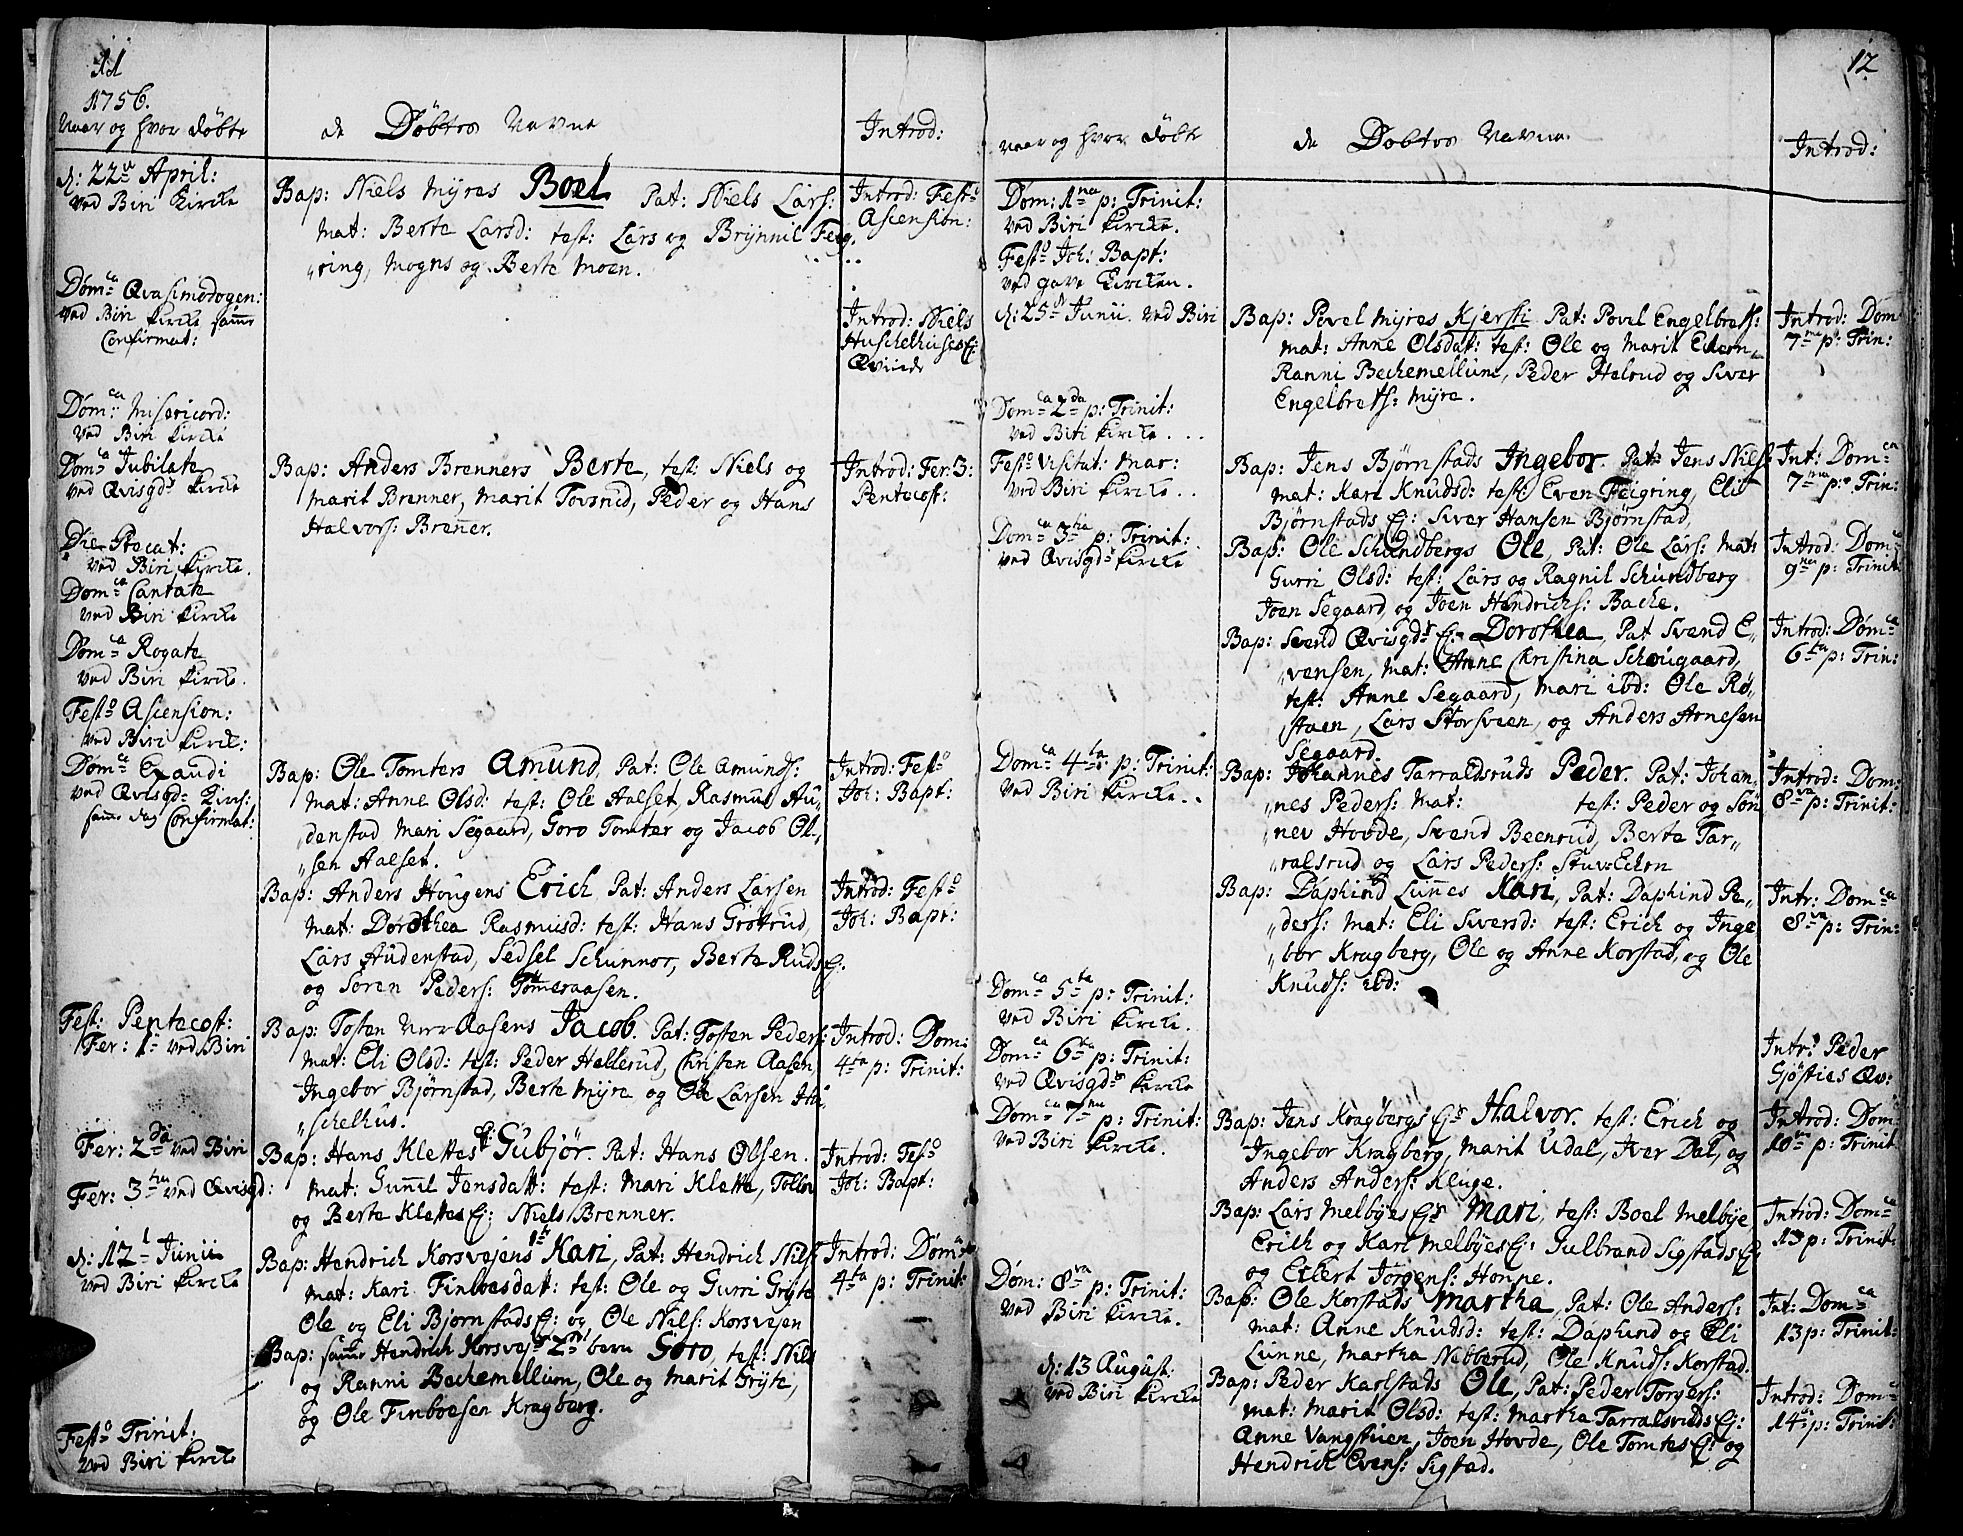 11
1756.
Naar og hvor døbte
de Døbtes Navne
Introd:
d: 22de April:
ved Biri Kircke
Bap: Niels Myres Boel Pat: Niels Lars:
mat: Berte Larsd: test: Lars og Brynnil Feig,
„ring, Mogns og Berte Moen.
Introd: Festo
Ascension:
Domca Qvasimodogen:
ved Biri Kircke samme
Confirmat:
Introd: Niels
Huschelhuses Ej:
Qvinde
Domca Misericord:
ved Biri Kircke
Domca Jubilate
ved Qvisgds Kircke
Bap: Anders Brenners Berte, test: Niels og
Marit Brenner, Marit Tovsrud, Peder og Hans
Halvors: Brenner.
Introd: Fer: 3:
Pentecost:
Die Rocat:
ved Biri Kircke.
Domca Cantate
ved Biri Kircke
Domca Rogate
ved Biri Kircke.
Festo Ascension:
ved Biri Kirck:
Domca Exaudi
ved Qvisgd: Kirc:
samme dag Confirmat:
Bap: Ole Tomters Amund, Pat: Ole Amunds:
mat: Anne Olsd: test: Ole Aalset, Rasmus Au„
„denstad Mari Segaard, Goro Tomter og Jacob Ol„
„sen Aalset.
Introd: Festo
Joh: Bapt:
Bap: Anders Hougens Erich, Pat: Anders Larsen
mat: Dorothea Rasmusd: test: Hans Grotrud,
Lars Audenstad, Sedsel Schunnor, Berte Ruds Ej.
og Soren Peders: Tømeraasen.
Introd: Festo
Joh: Bapt:
Fest: Pentecost:
Fer: 1a ved Biri
Bap: Tosten Nerraasens Jacob. Pat: Tosten Peders:
mat: Eli Olsd: test: Peder Hallerud, Christen Aasen,
Ingebor Bjørnstad, Berte Myre og Ole Larsen Hu„
„schelhus.
Introd: Dom:
4ta p: Trinit:
Fer: 2da ved Biri
Bap: Hans Klettes Ej Gubjør. Pat: Hans Olsen.
mat: Gunnil Jensdatt: test: Mari Klette,
og Berte Klettes Ej: Niels Brenner.
Introd: Festo
Joh: Bapt:
Fer: 3tia ved Qvisgd:
d: 17t Junii
ved Biri Kircke
Bap: Hendrich Korsvejens 1te Kari, Pat: Hendrich Nils:
mat: Kari Finboesdatt: test: Ole og Gurri Gryte
Ole og Eli Bjørnstads Ej: og Ole Nils: Korsvejen
Introd: Domca
4ta p: Trinit:
Bap: samme Hendrich Korsvejs 2det bern Goro, test: Nils
og Ranni Bechemellum, Ole og Marit Gryte,
og Ole Finboesen Kragberg.
Festo Trinit:
ved Biri Kircke
12
Naar og hvor døbte
de Døbtes Navne.
Introd:
Dom: 1ma p: Trinit:
ved Biri Kircke.
Festo Joh: Bapt:
ved gave Kircken.
d: 25de Junii. ved Biri
Bap: Povel Myres Kjersti Pat: Povel Engelbrets:
mat: Anne Olsdat: test: Ole og Marit Echern,
Ranni Bechemellum, Peder Halrud og Siver
Engelbrets: Myre.
Introd: Dom
7ma p: Trin:
Domca 2da p: Trinit:
ved Biri Kircke...
Festo Visitat: Mar:
ved Biri Kircke..
Bap: Jens Bjørnstads Ingebor. Pat: Jens Niels:
mat: Kari Knudsd: test: Even Feigring, Eli
Bjørnstads Ej: Siver Hansen Bjørnstad,
Int: Domca
7ma p: Trin:
Domca 3tia p: Trinit:
ved Qvisgds Kircke
Bap: Ole Schundbergs Ole, Pat: Ole Lars: Mat:
Gurri Olsd: test: Lars og Ragnil Schundberg
Joen Segaard, og Joen Hendrichs: Bache.
Introd: Dom:
9na p: Trinit
Bap: Svend Qvisgds Ej: Dorothea, Pat Svend E„
„vensen, mat: Anne Christina Schougaard,
test: Anne Segaard, Mari ibd: Ole Rø„
„staen, Lars Storsveen, og Anders Arnesen
Segaard.
Introd: Domca
6ta p: Trin:
Domca 4ta p: Trinit:
ved Biri Kircke..
Bap: Johannes Tarraldsruds Peder. Pat: Johan„
„nes Peders: mat: test: Peder og Søn„
„nev Hovde, Svend Beenrud, Berte Tar„
„ralsrud og Lars Peders: Stuv Echrn
Introd: Dom:
8va p: Trinit:
Bap: Daphind Lunnes Kari, Pat: Daphind Pe„
„ders: mat: Eli Siversd: test: Erich og Inge„
„bor Kragberg, Ole og Anne Korstad, og Ole
Knuds: ibd:
Intr: Domca
8va p: Trin:
Domca 5ta p: Trinit:
ved Biri Kircke.
Domca 6ta p: Trinit:
ved Qvisgds Kircke
Intr: Peder
Sjøsties Qv:
Domca 7ma p: Trinit:
ved Biri Kircke.
Bap: Jens Kragbergs Ejs Halvor. test: Erich og
Ingebor Kragberg, Marit Udal, Iver Dal, og
Anders Anders: Kluge.
Introd: Dom:
10ma p: Trinit
Bap: Lars Melbyes Ejs Mari, test: Boel Melbye
Erich og Kari Melbyes Ej: Gulbrand Sigstads Ej
og Eilert Jorgens: Honne.
Introd: Domca
13 p: Trinit:
Dom: 8va p: Trinit:
ved Biri Kircke.
Bap: Ole Korstads Martha, Pat: Ole Anders:
mat: Anne Knudsd: test: Daphind og Eli
Lunne, Martha Nebberud, Ole Knuds: Korstad.
Int: Domca
13 p: Trinit:
d: 13 August:
ved Biri Kircke
Bap: Peder Karlstads Ole, Pat: Peder Torgers:
mat: Marit Olsd: test: Martha Tarralsruds Ej:
Anne Vangstuen, Joen Hovde, Ole Tomtes Ej: og
Hendrich Evens: Sigstad.
Introd: Domca
14 p: Trinit: